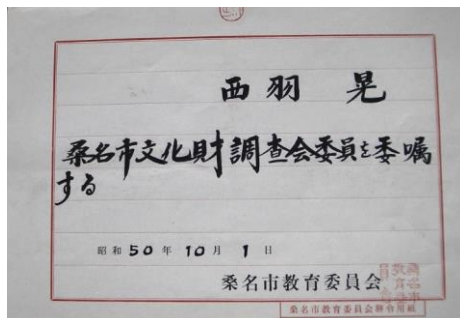 西羽 晃
桑名市文化財調査会委員を委嘱
する
昭和50年10月1日
桑名市教育委員会
桑名市教育委員会辞令用紙